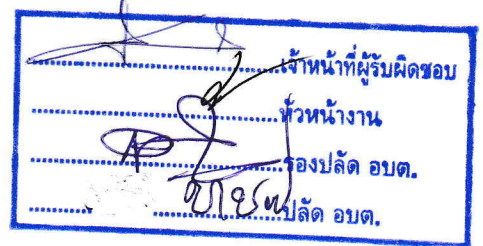 ....................เจ้าหน้าที่ผู้รับผิดชอบ
....................หัวหน้างาน
....................รองปลัด อบต.
....................ปลัด อบต.